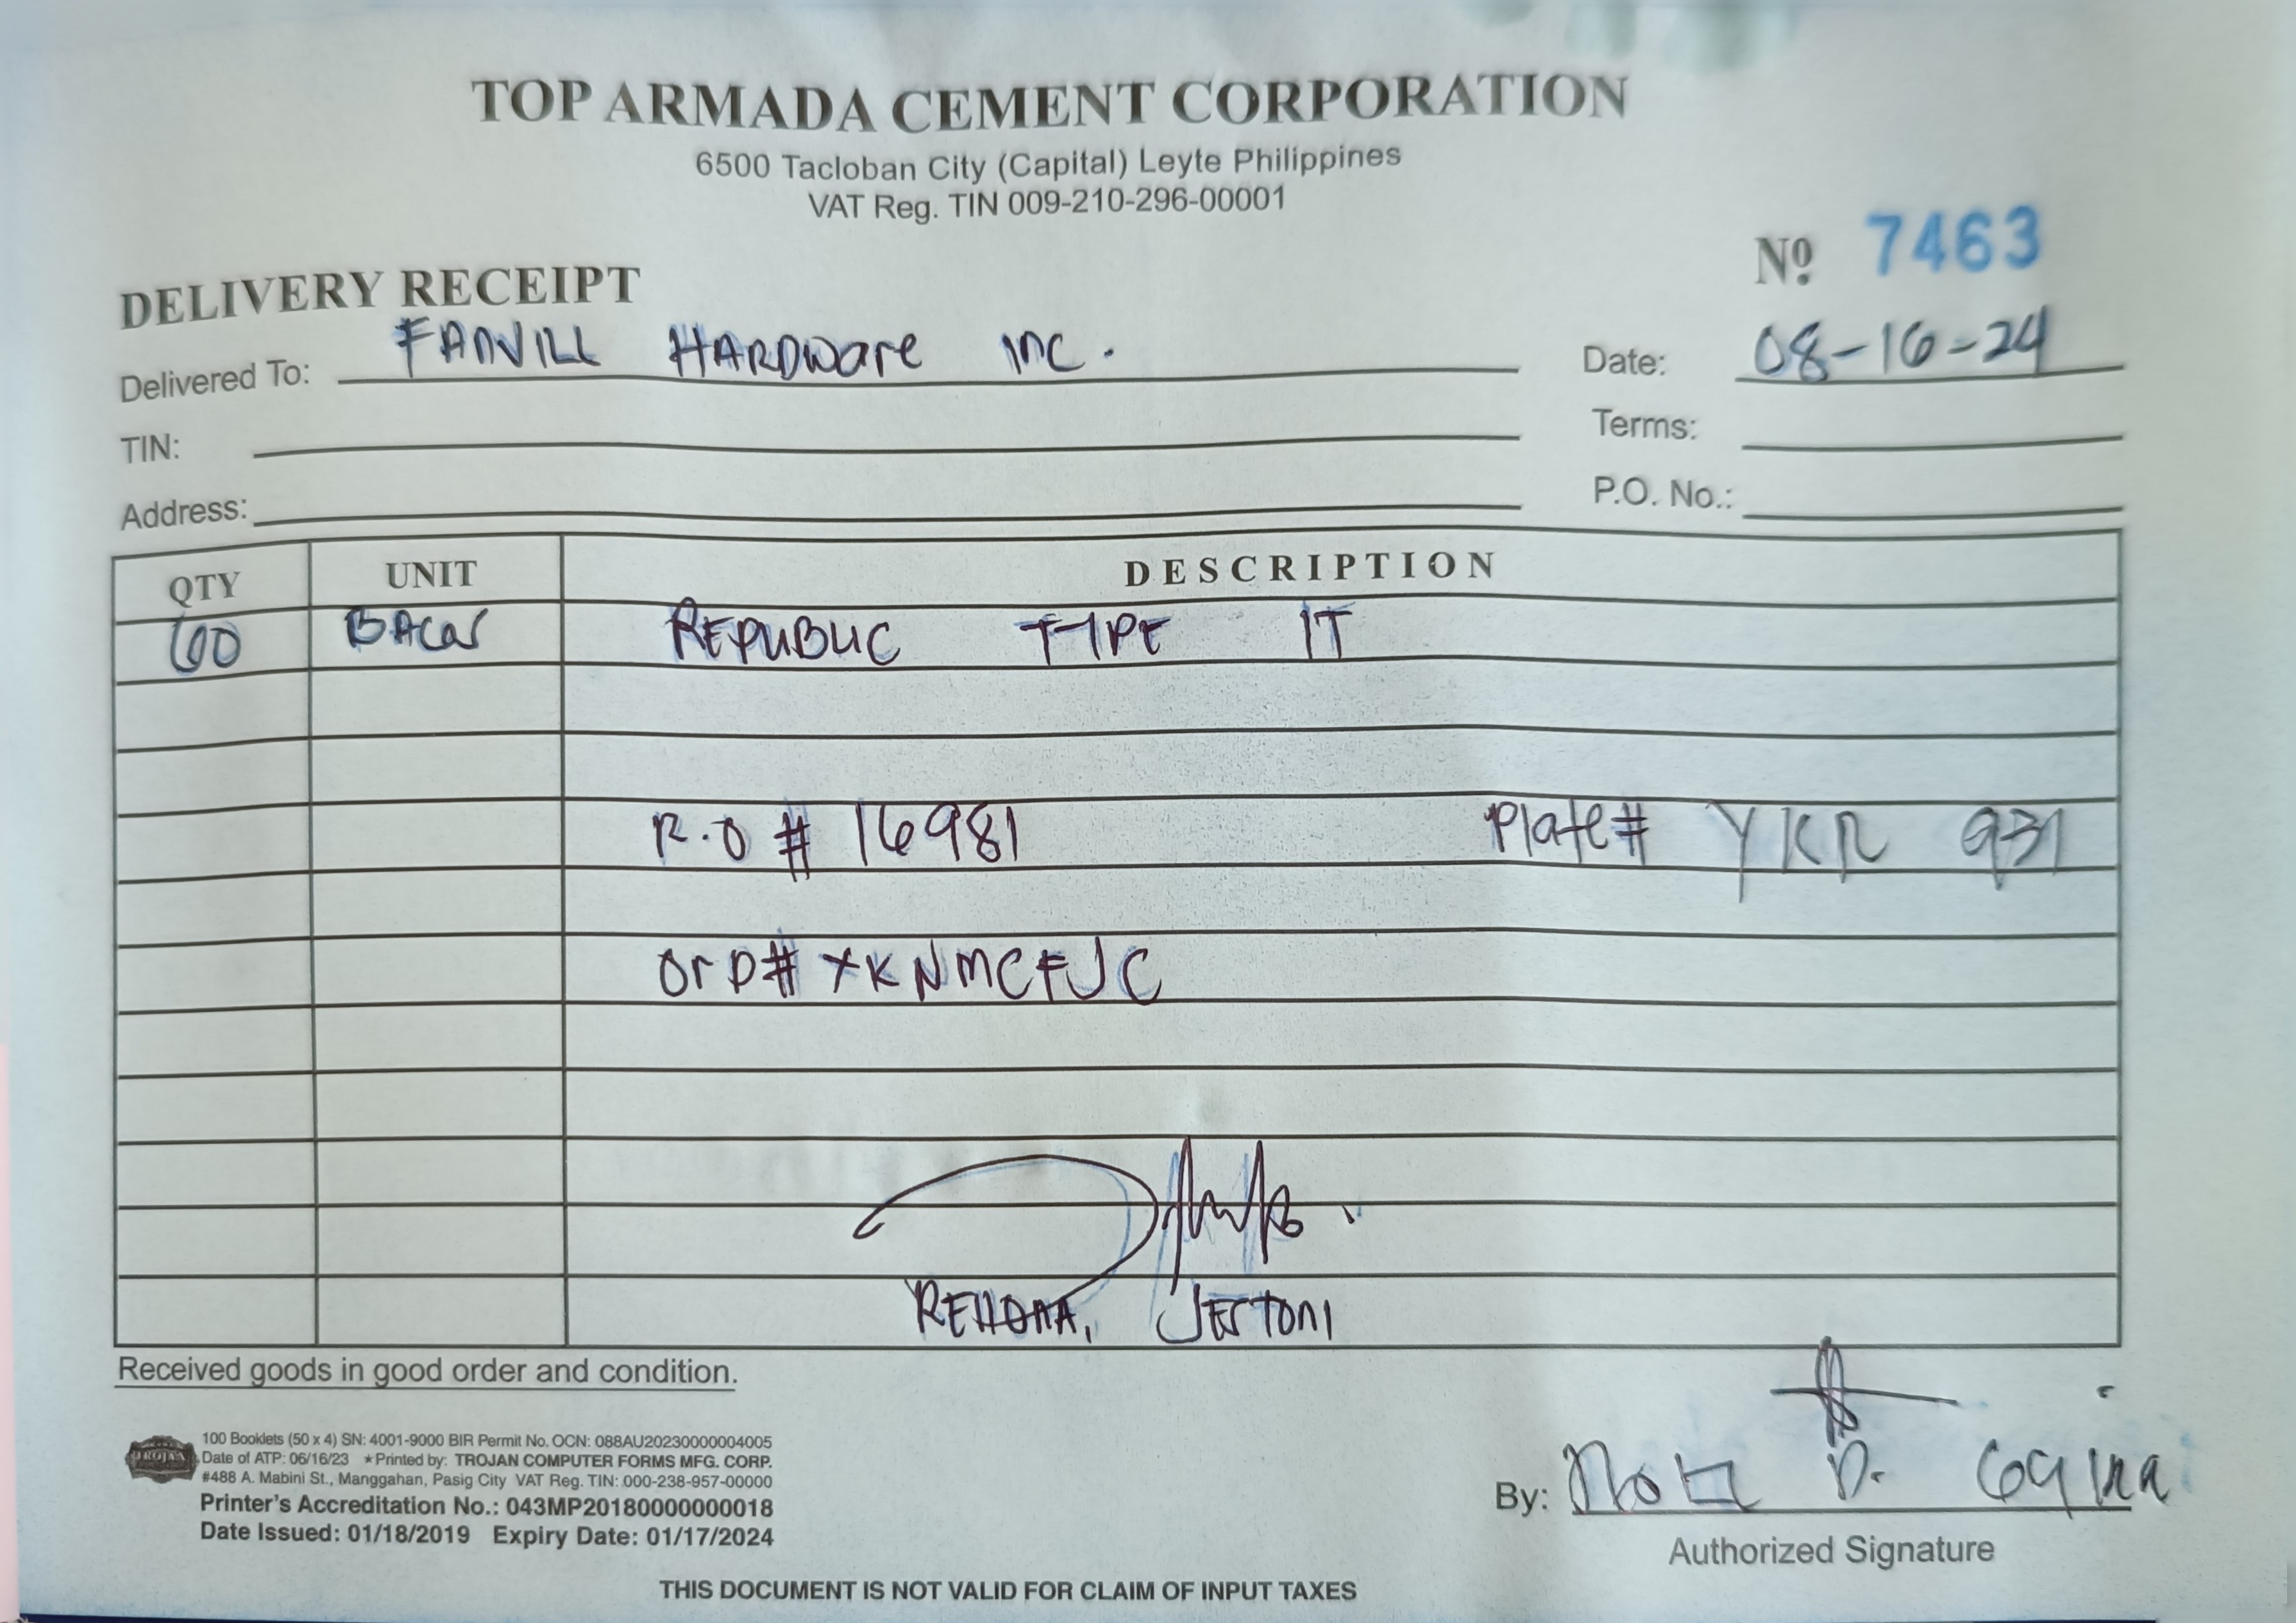 TOP ARMADA CEMENT CORPORATION
6500 Tacloban City (Capital) Leyte Philippines
VAT Reg. TIN 009-210-296-00001
Nº 7463
DELIVERY RECEIPT
Delivered To: FANVILL HARDWare INC.
Date: 08-16-24
TIN:
Terms:
Address:
P.O. No.:
QTY UNIT DESCRIPTION
60 REPUBLIC TYPE 1T
R.O # 16981 Plate# YKR 931
OrD# XKNMCFJC
JESTONI
Received goods in good order and condition.
TROJAN
100 Booklets (50 x 4) SN: 4001-9000 BIR Permit No. OCN: 088AU20230000004005
Date of ATP: 06/16/23 ★Printed by: TROJAN COMPUTER FORMS MFG. CORP.
#488 A. Mabini St., Manggahan, Pasig City VAT Reg. TIN: 000-238-957-00000
Printer's Accreditation No.: 043MP20180000000018
Date Issued: 01/18/2019 Expiry Date: 01/17/2024
By: D.
Authorized Signature
THIS DOCUMENT IS NOT VALID FOR CLAIM OF INPUT TAXES